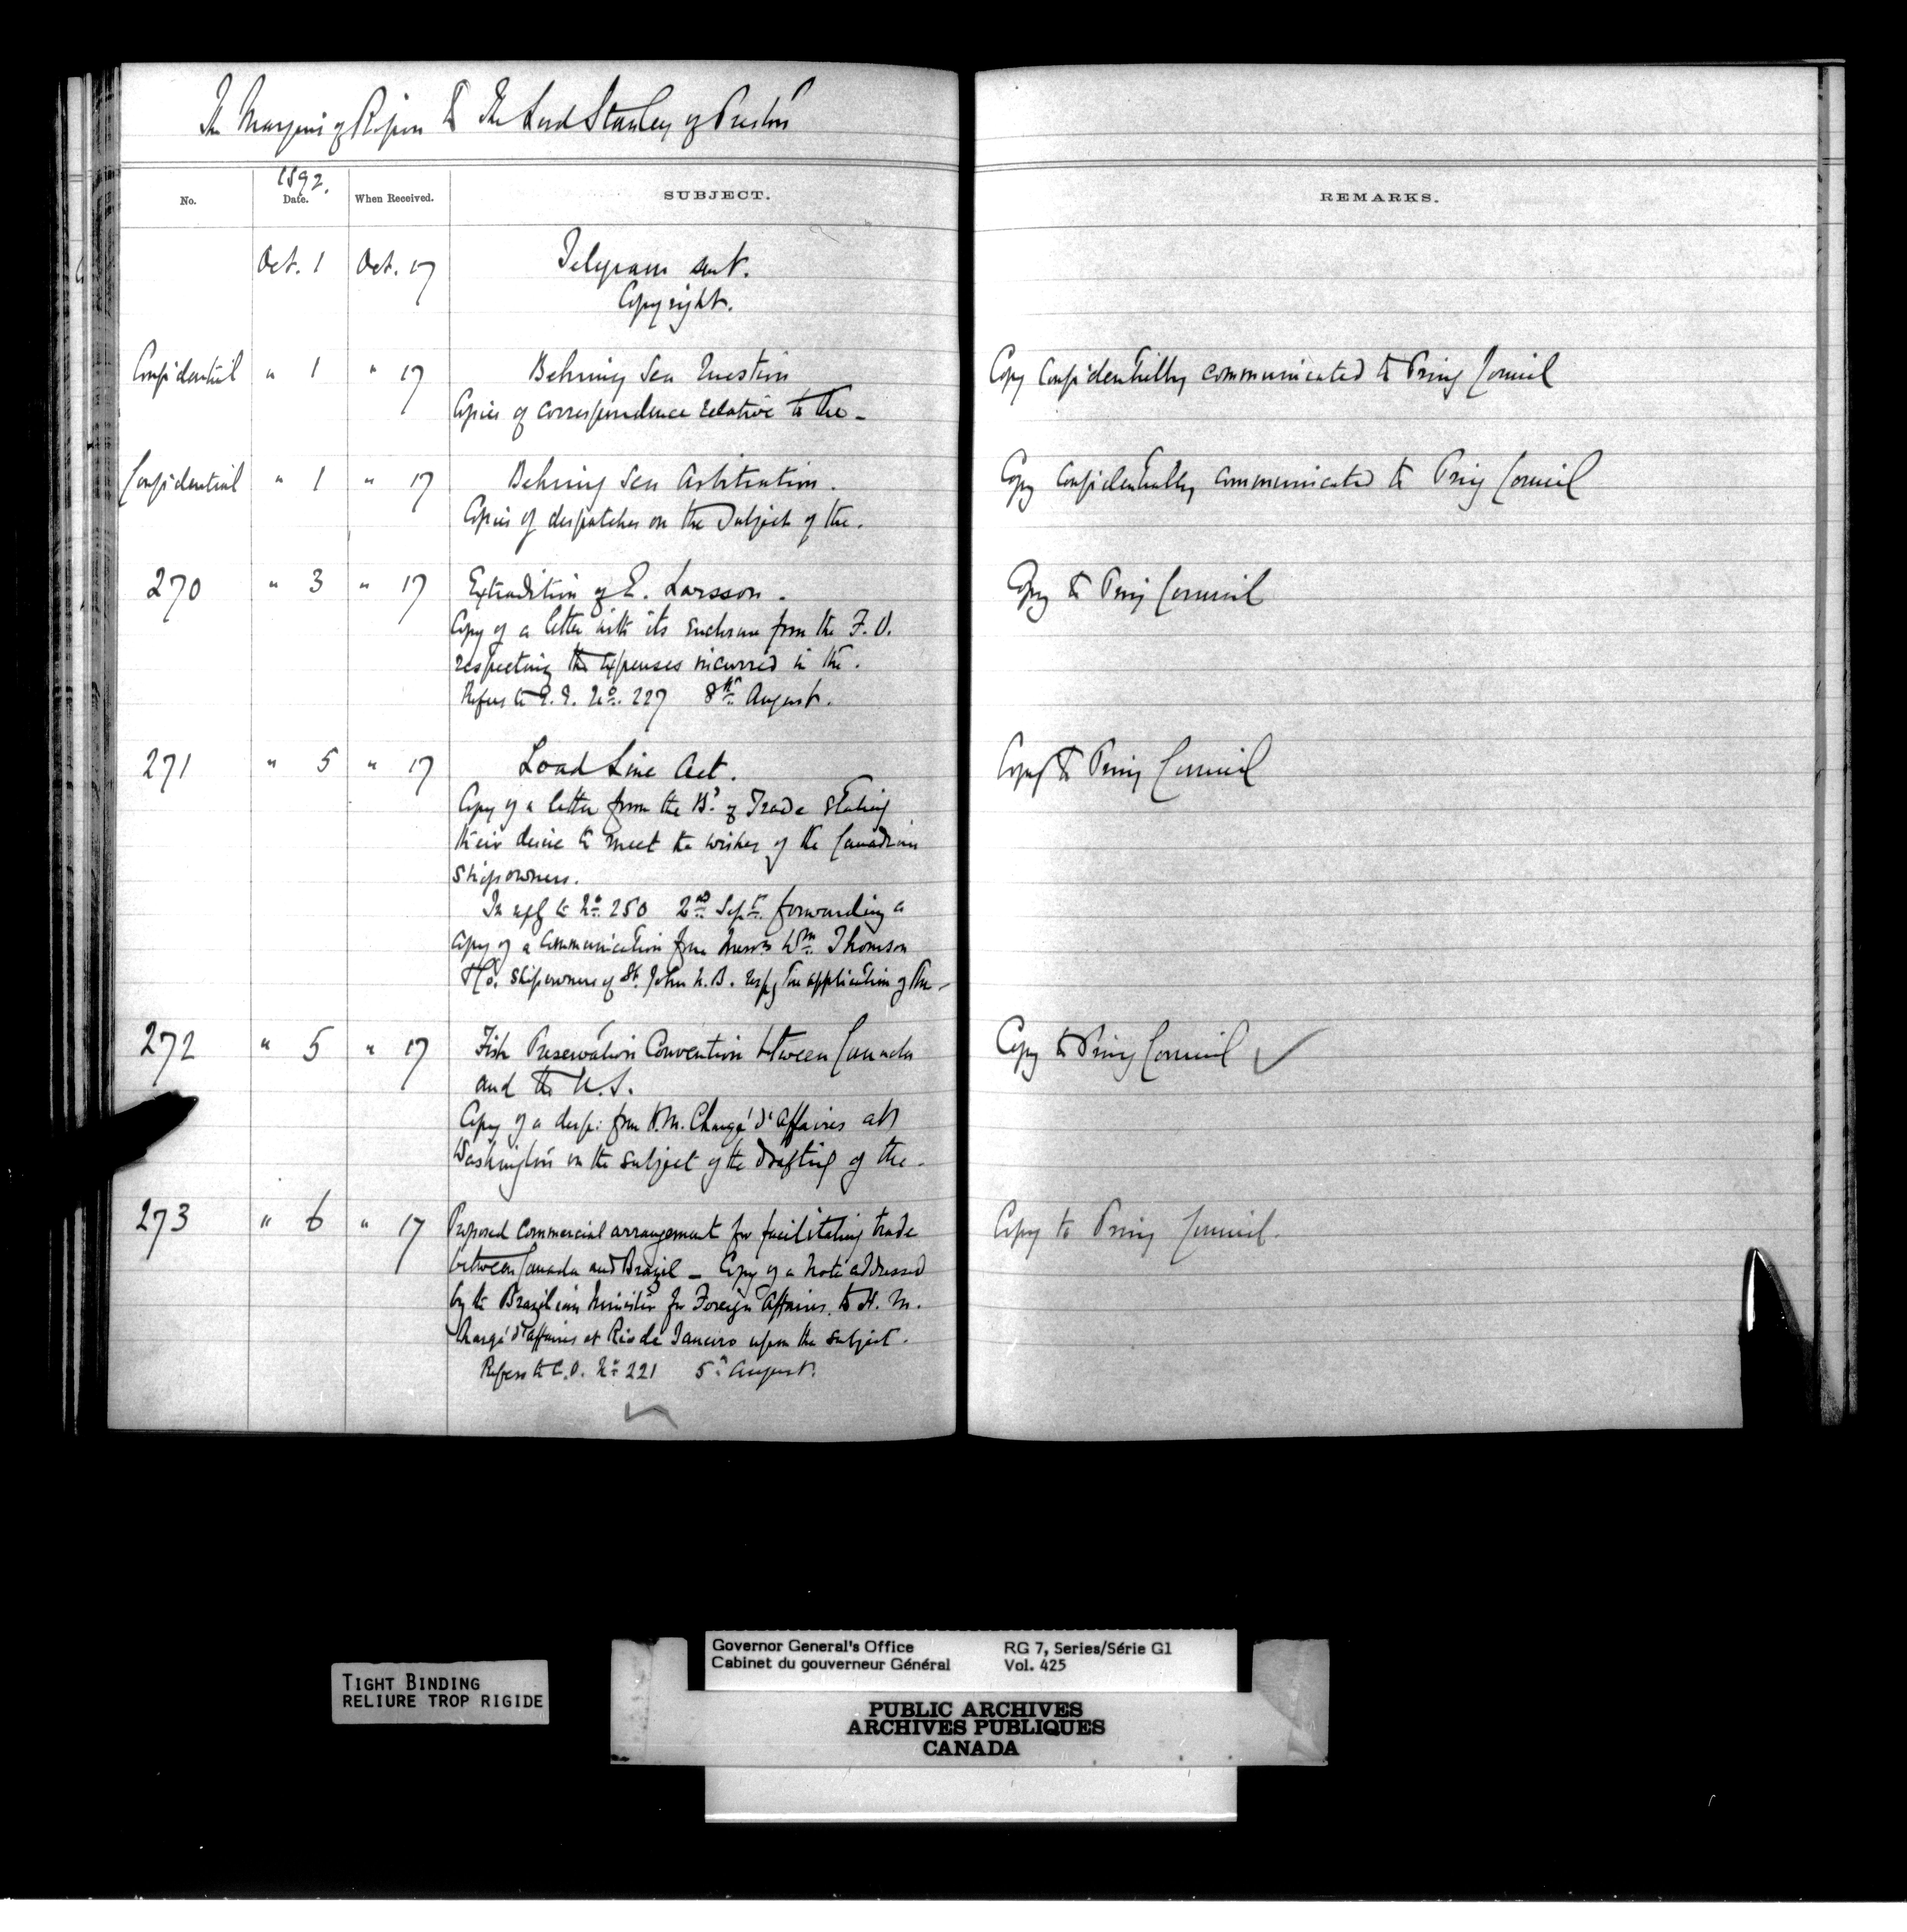 The Marquis of Ripon to The Lord Stanley of Preston
1892.
No. Date. When Received. SUBJECT. REMARKS.
Oct. 1 Oct. 17 Telegram sent.
Copyright.
Confidential " 1 " 17 Behring Sea Question Copy Confidentially communicated to Privy Council
Copies of correspondence relative to the -
Confidential " 1 " 17 Behring Sea Arbitration. Copy Confidentially communicated to Privy Council
Copies of despatches on the subject of the.
270 " 3 " 17 Extradition of E. Larsson. Copy to Privy Council
Copy of a letter with its enclosure from the F.O.
respecting the expenses incurred in the.
Refers to No. 227 8th August.
271 " 5 " 17 Load Line Act. Copy to Privy Council
Copy of a letter from the Bd of Trade stating
their desire to meet the wishes of the Canadian
Shipowners.
In reply to No. 250 2nd Sept. forwarding a
copy of a communication from Messrs Wm Thomson
& Co. Shipowners of St. John N.B. respg the application of the -
272 " 5 " 17 Fish Preservation Convention between Canada Copy to Privy Council ✓
and the U.S.
Copy of a desp: from H.M. Chargé d'Affaires at
Washington on the subject of the drafting of the -
273 " 6 " 17 Proposed Commercial arrangement for facilitating trade Copy to Privy Council.
between Canada and Brazil - Copy of a Note addressed
by the Brazilian Minister for Foreign Affairs to H.M.
Chargé d'affaires at Rio de Janeiro upon the subject.
Refers to C.O. No 221 5th August.
Governor General's Office RG 7, Series/Série G1
Cabinet du gouverneur Général Vol. 425
TIGHT BINDING
RELIURE TROP RIGIDE
PUBLIC ARCHIVES
ARCHIVES PUBLIQUES
CANADA